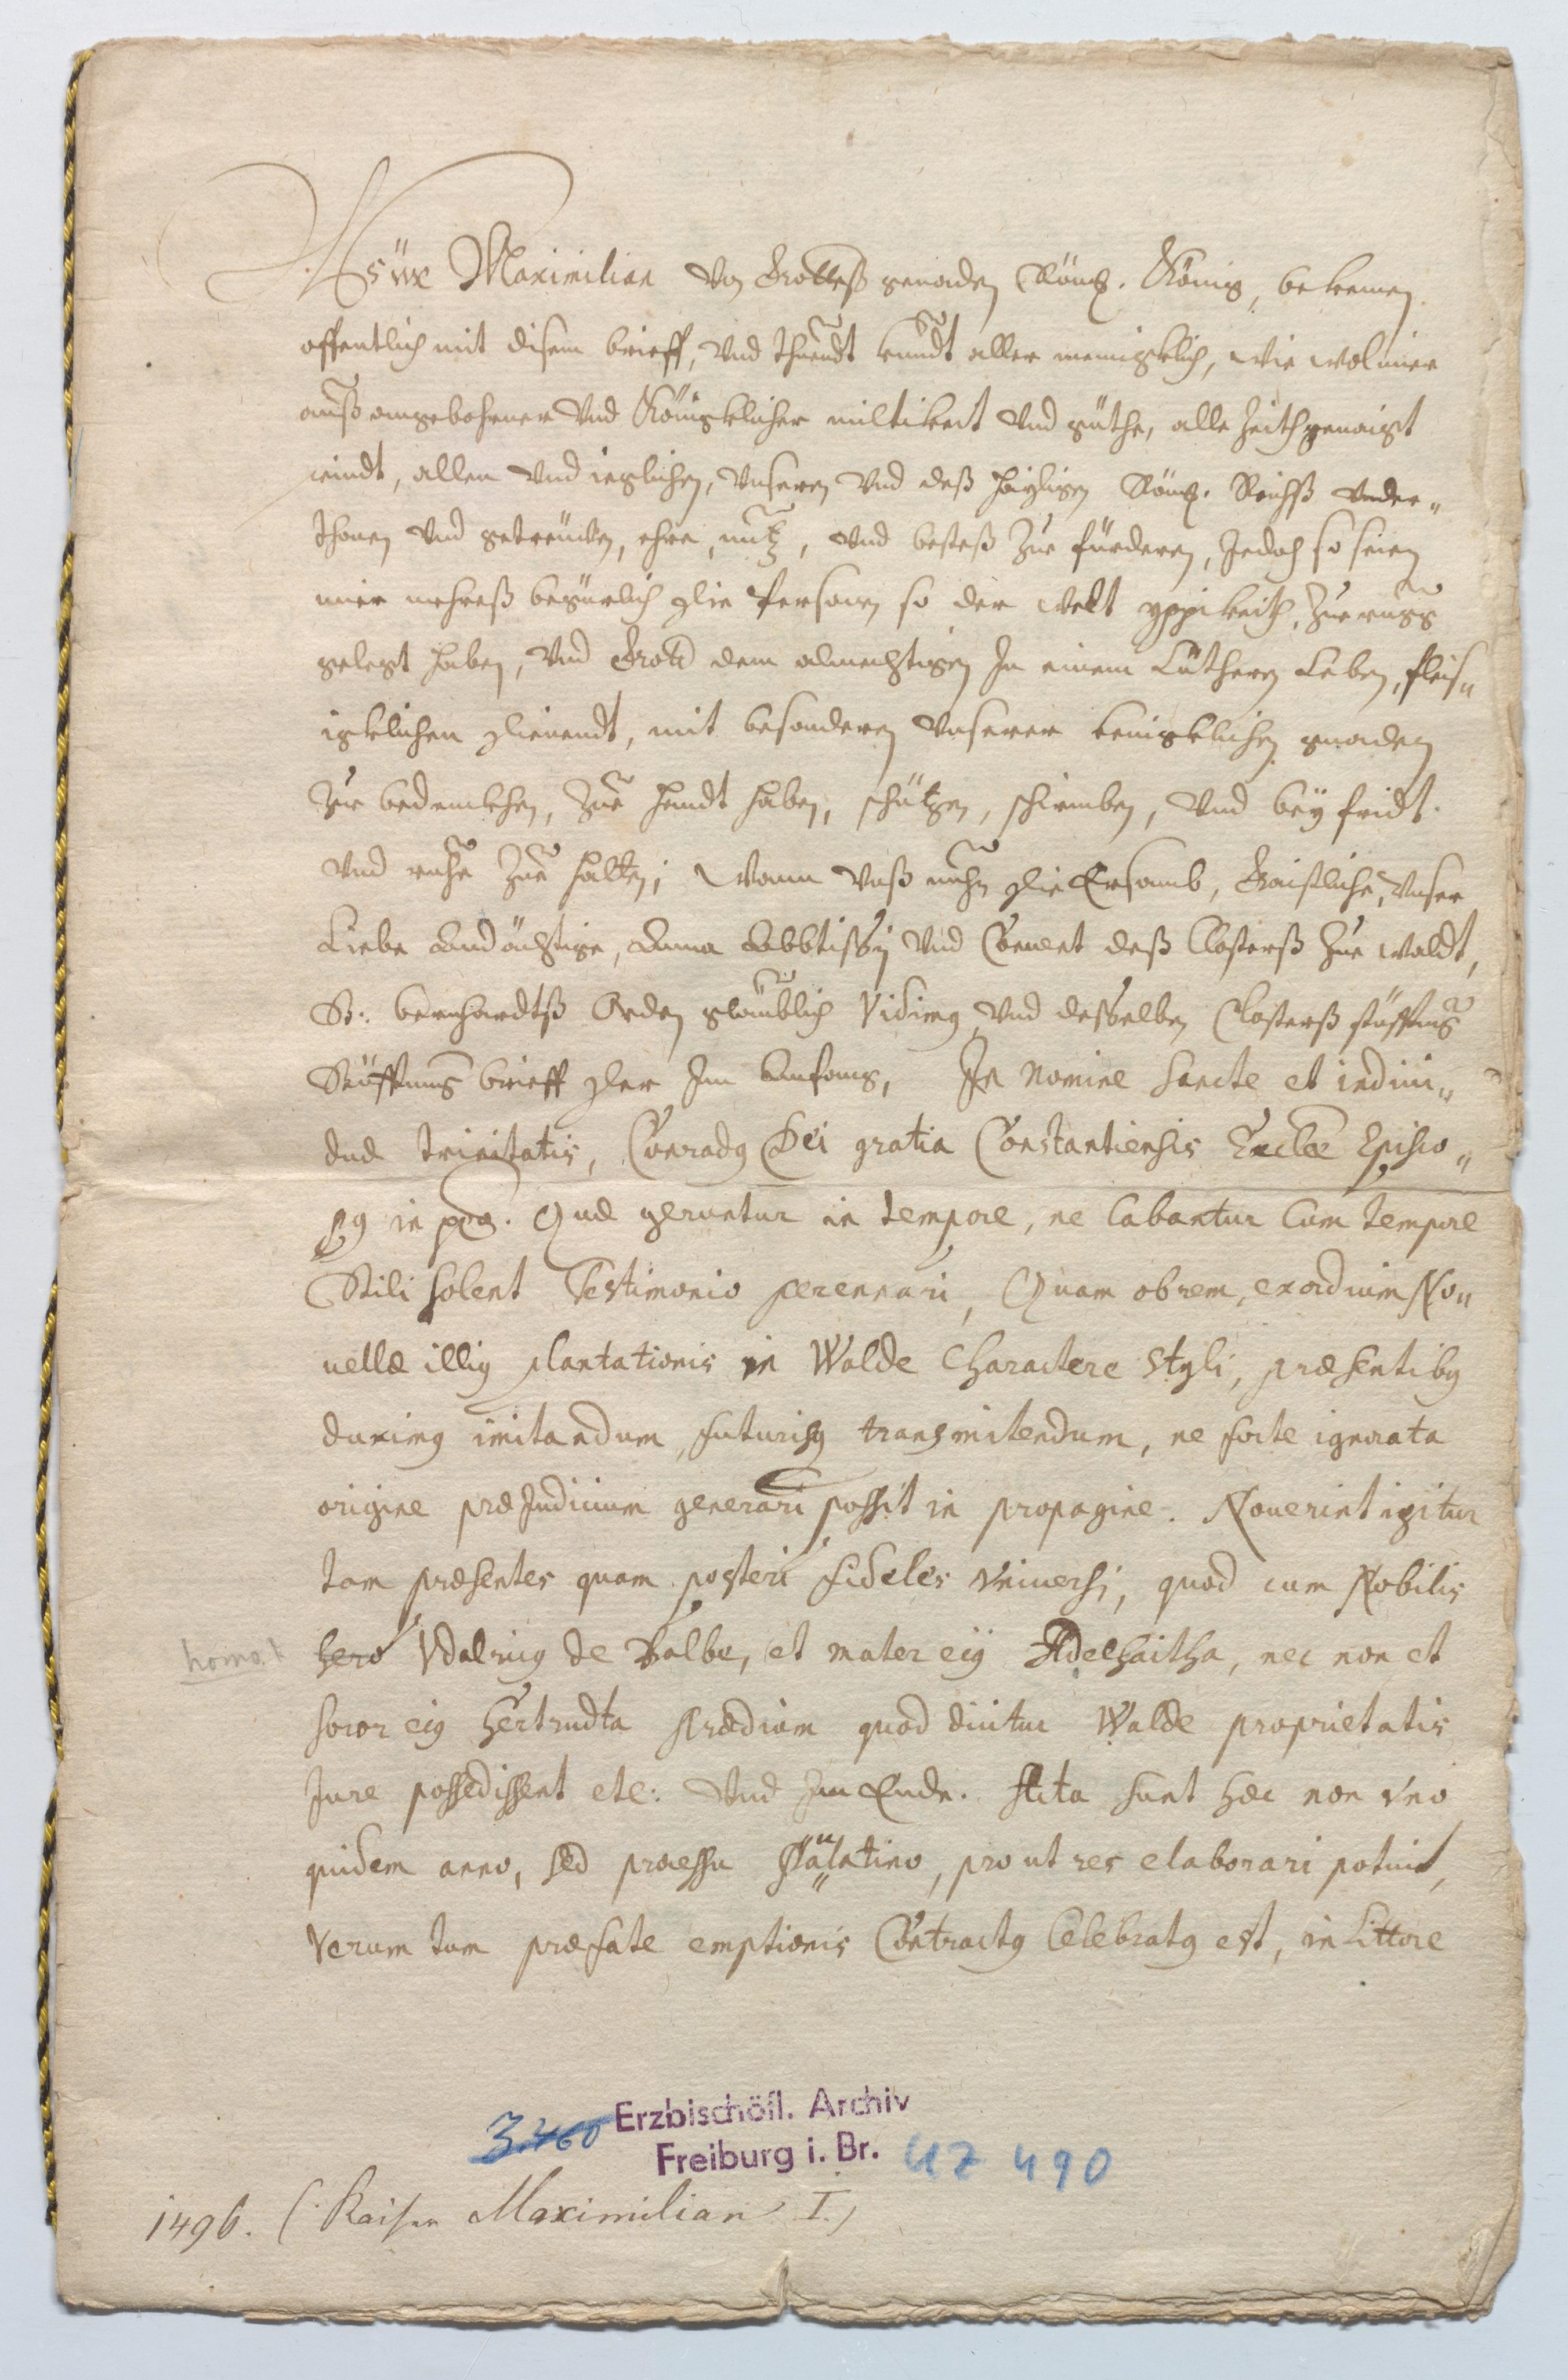 Wür Maximilian Von Gotteß genaden Röm. König, bekennen
offentlich mit disem brieff, Vnd thuendt kundt aller menigklich, wie wol mier
auß angebohrner Vnd Königklicher miltikeit Vnd güthe, alle Zeith genaigt
seindt, allen Vnd ieglichen, Vnseren Vnd deß hayligen Röm. Reichß Vnder„
thonen Vnd getreüwen, ehre, nutz, Vnd besteß Zue fürderen, Jedoch so seien
mier mehreß begürlich die Personen so der welt yppikeith, Zue rugg
gelegt haben, Vnd Gott dem almechtigen In einem Lutheren Leben, fleis„
igklichen dienendt, mit besonderen Vnserer kenigklichen gnaden
Zue bedenckhen, Zue handt haben, schützen, schirmben, Vnd bey fridt
Vnd ruhe Zue halten; Wann Vnß nuhn die Ersamb, Gaistliche, Vnser
Liebe Andächtige, Anna Abbtissin Vnd Convent deß Closterß Zue Waldt,
St: bernhardtß Orden glaublich Vidimus Vnd desselben Closterß stüfftung
Stüfftung brieff der Im Anfang, In Nomine Sancte et indiui„
duæ trinitatis, Conradus Dei gratia Constantiensis Ecclæ Episco„
pus in ppm. Quæ geruntur in tempore, ne labantur Cum tempore
Stili solent Testimonio perennari, Quam obrem, exordium No„
uellæ illius plantationis in Walde Charactere Styli, præsentibus
duximus imitandum, futurisq transmitendum, ne forte ignorata
origine præJudicium generari possit in propagine. Nouerint igitur
tam præsentes quam posteri fideles Vniuersi, quod cum Nobilis
homo.
hero Vdalricus de Balbe, et mater eius Adelhaitha, nec non et
soror eius Hertrudta prædium quod dicitur Walde proprietatis
Jure possedissent etc: Vnd Im Ende. Acta sunt hæc non Vno
quidem anno, sed processu Paulatino, prout res elaborari potuit,
Verum tum præfate emptionis Contractus Celebratus est, in Littore
3.460
Erzbischöfl. Archiv
Freiburg i. Br.
UZ 490
1496. (Kaiser Maximilian I.)